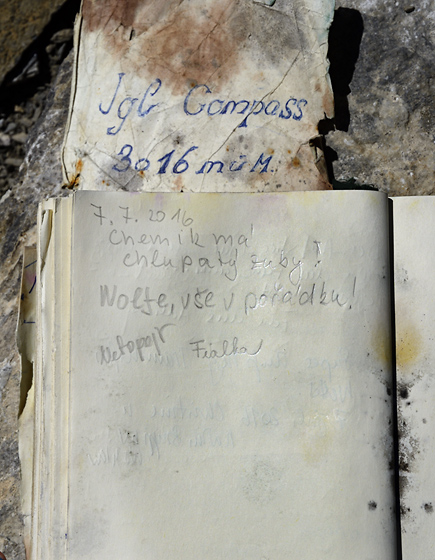 Jgl Compass
3016 m ü M.
7.7.2016
Chemik má
chlupatý žáby!
Wolfe, vše v pořádku!
Netopejr Fialka